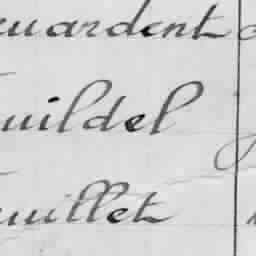 uardent
uildel
uillet